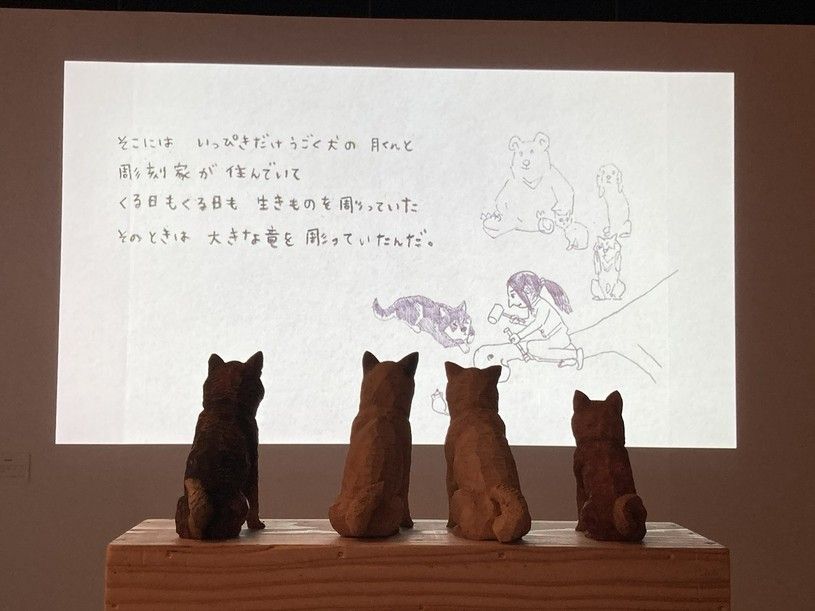 そこには いっぴきだけうごく犬の 月くんと
彫刻家が 住んでいて
くる日もくる日も 生きものを彫っていた
そのときは 大きな竜を 彫っていたんだ。